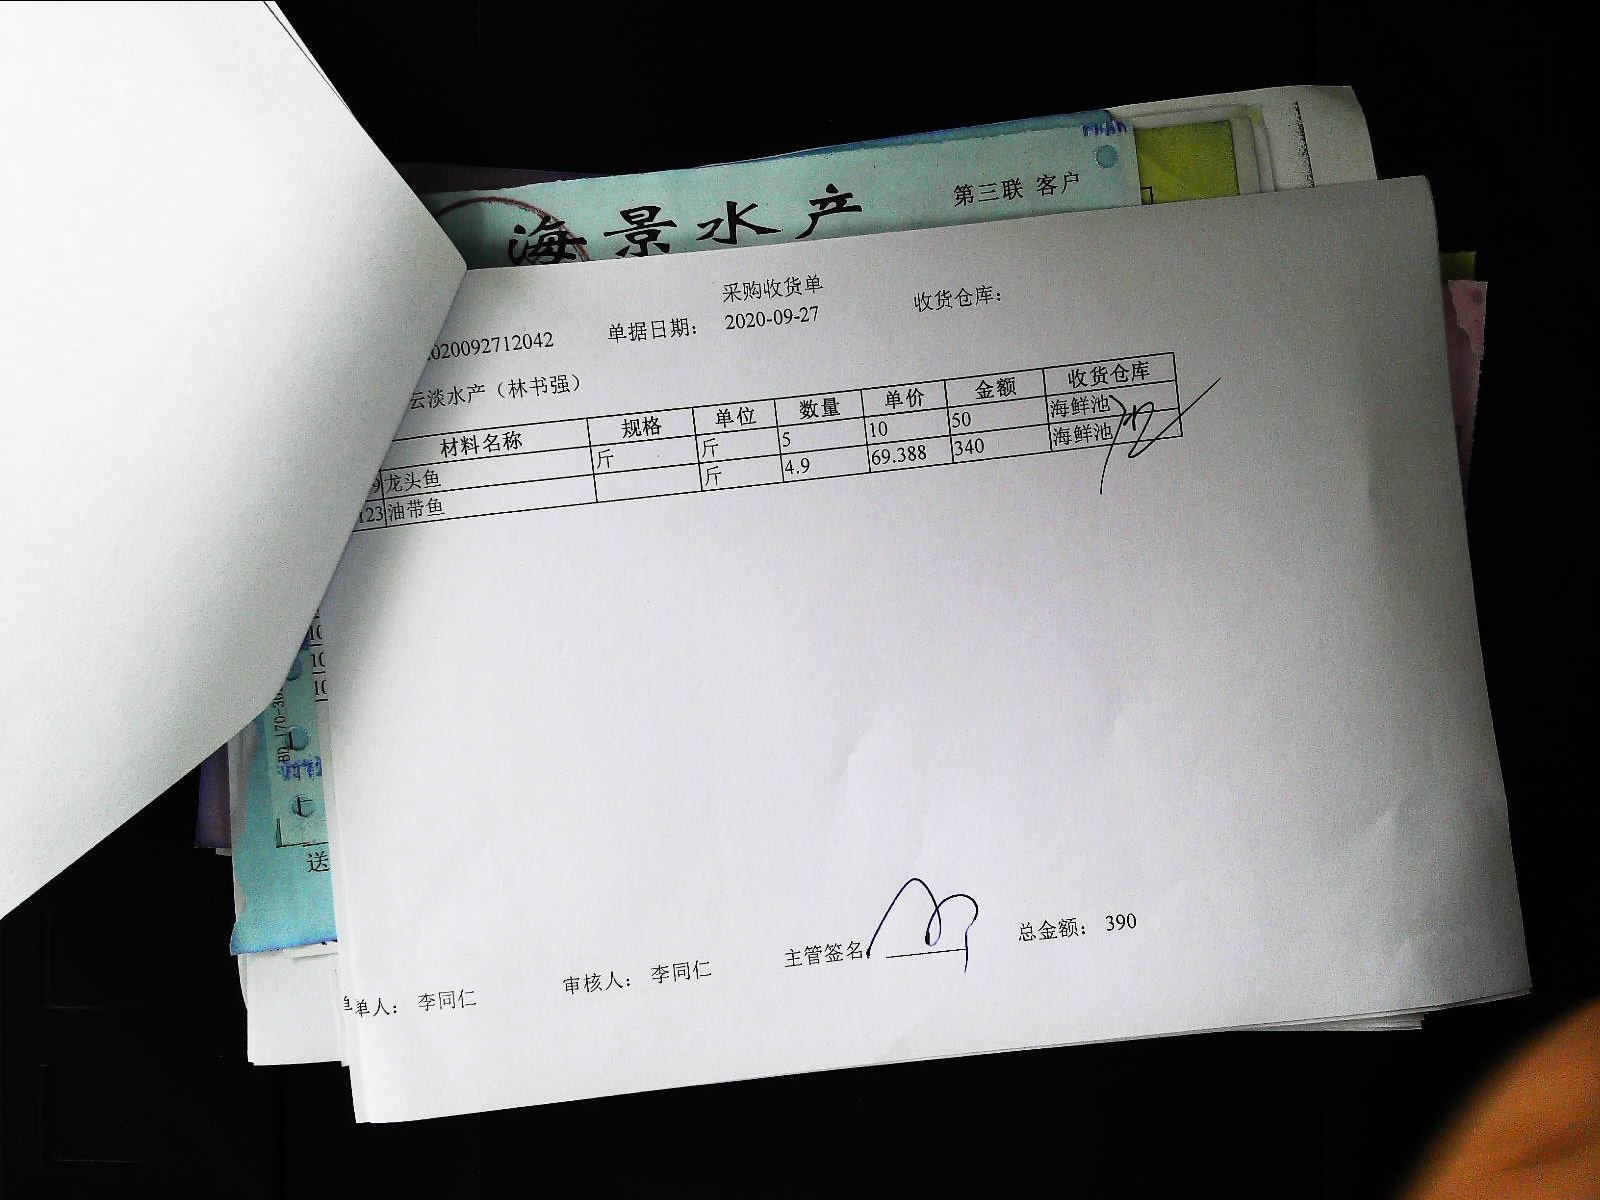 第三联 客户
海景水产
采购收货单
020092712042 单据日期： 2020-09-27 收货仓库：
云淡水产（林书强）
材料名称 规格 单位 数量 单价 金额 收货仓库
9 龙头鱼 斤 斤 5 10 50 海鲜池
123 油带鱼 斤 4.9 69.388 340 海鲜池
10
10
10
BD 170-30
送
主管签名 总金额： 390
单人： 李同仁 审核人： 李同仁